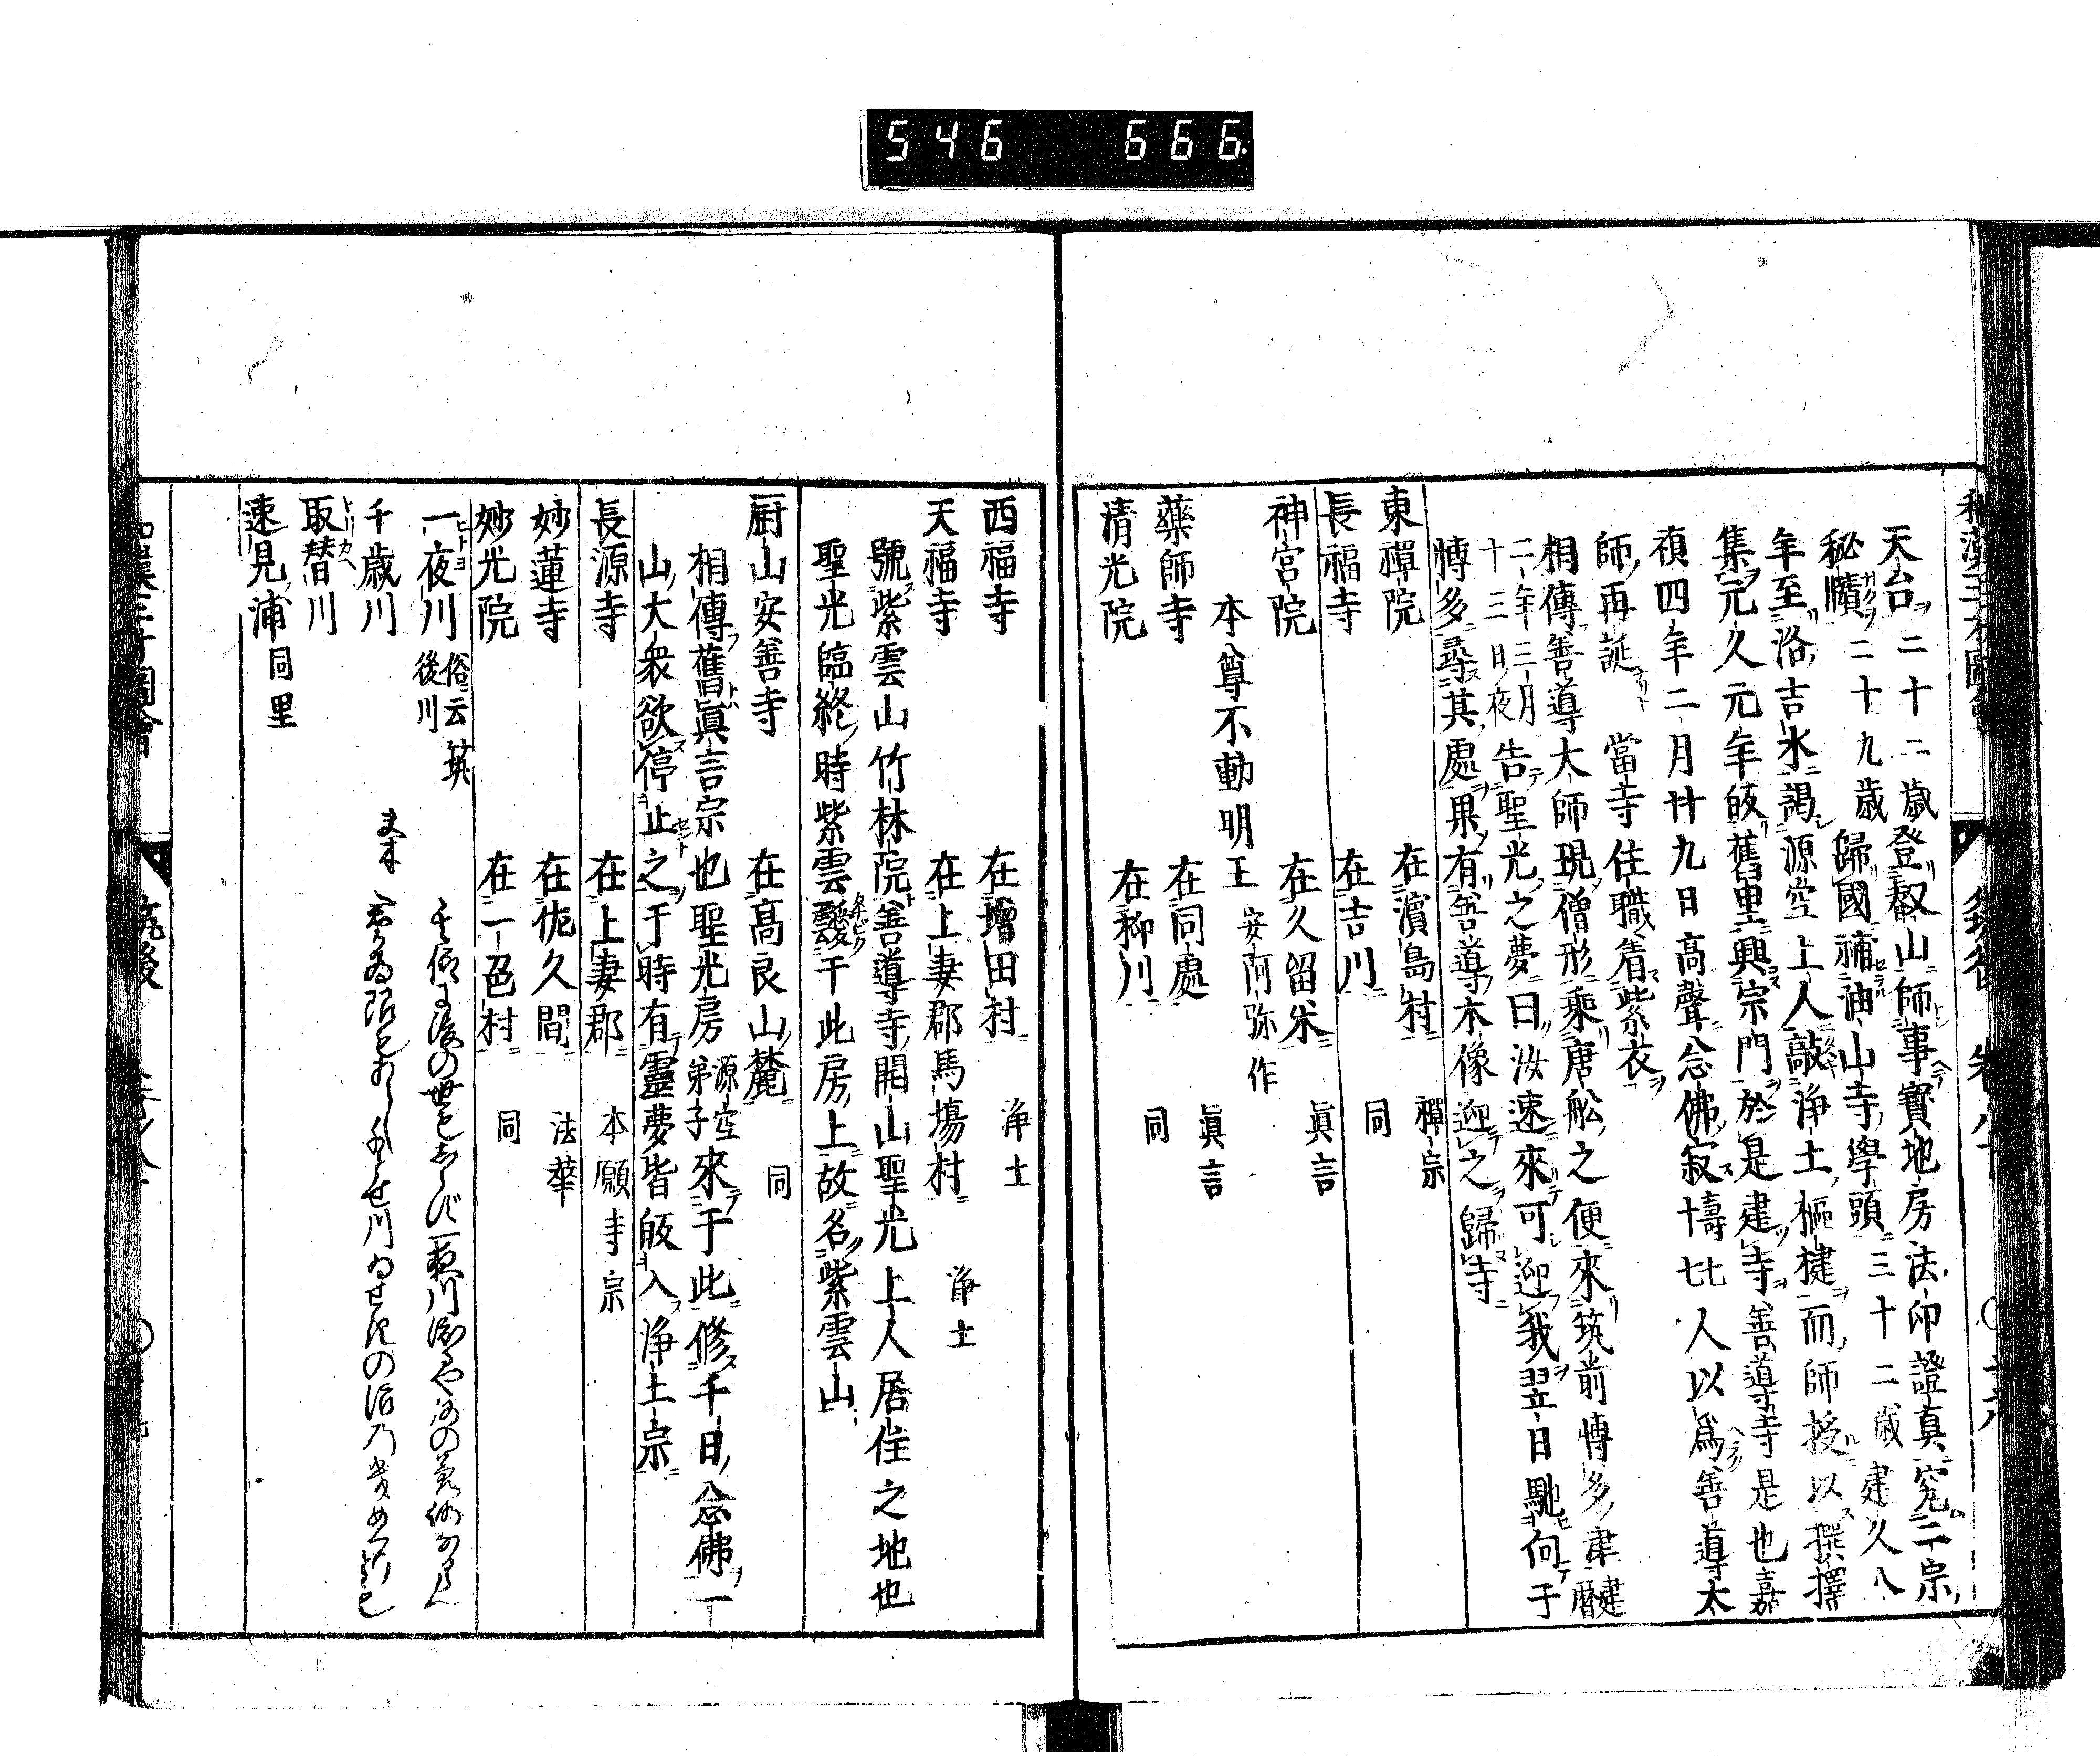 546 666
和漢三才圖會
天台二十二歲登叡山師事寶地房法印證真究二宗
秘賾二十九歲歸國補油山寺學頭三十二歲建久八
年至洛吉水謁源空上人敲浄土樞楗而師授以撰擇
集元久元年皈舊里興宗門於是建寺善導寺是也嘉
禎四年二月廿九日高聲念佛寂十壽七七人以爲善導大
師再誕 當寺住職着紫衣
相傳善導大師現僧形乘唐舩之便來筑前博多津建暦
二年三月十三日夜告聖光之夢曰汝速來可迎我翌日馳向于
博多尋其處果有善導木像迎之歸寺
東禪院 在濵島村 禪宗
長福寺 在吉川 同
神宮院 在久留米 眞言
本尊不動明王 安阿弥作
藥師寺 在同處 眞言
清光院 在柳川 同
西福寺 在増田村 浄土
天福寺 在上妻郡馬塲村 浄土
號紫雲山竹林院善導寺開山聖光上人居住之地也
聖光臨終時紫雲靉于此房上故名紫雲山
厨山安善寺 在高良山麓 同
相傳舊眞言宗也聖光房源空弟子來于此修千日念佛一
山大衆欲停止之于時有靈夢皆皈入浄土宗
長源寺 在上妻郡 本願寺宗
妙蓮寺 在佐久間 法華
妙光院 在一色村 同
一夜川 俗云筑後川
千歳川
取替川
速見浦 同里
和漢三才圖會 筑後